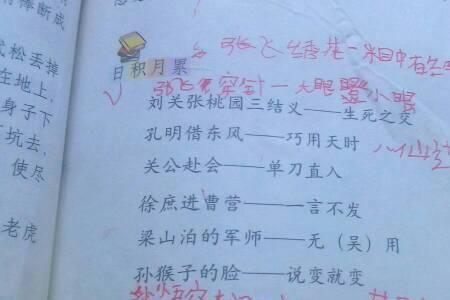 棒断成
松丢掉
在地上,
身子下
坑去,
使尽
老虎
张飞绣花一粗中有
日积月累
张飞 穿针一大眼瞪小眼
刘关张桃园三结义——生死之交
孔明借东风——巧用天时
八仙
关公赴会——单刀直入
徐庶进曹营——一言不发
梁山泊的军师——无(吴)用
孙猴子的脸——说变就变
孙悟空